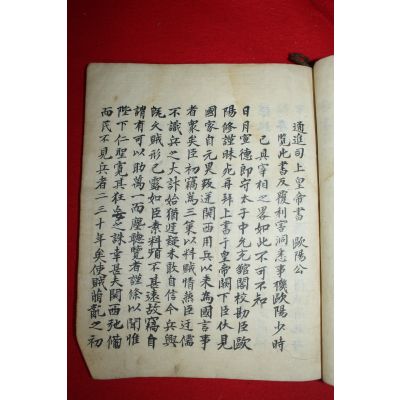 通進司上皇帝書 歐陽公
覽此書反覆利害洞悉事機歐陽少時
已具宰相之畧如此不可不知
日月宣德即守太子中允充館閣校勘臣歐
陽修謹昧死再拜上書于皇帝闕下臣伏見
國家自元昊叛逆關西用兵以來為國言事
者衆矣臣初竊為三策以料賊情然臣迂儒
不識兵之大計始猶遲疑未敢自信今兵興
既久賊形已露如臣素料頗不甚遠故竊自
謂有可以助萬一而塵聽覽者謹條以聞惟
陛下仁聖寬其狂妄之誅幸甚夫關西弛備
而民不見兵者二三十年矣使賊萌亂之初